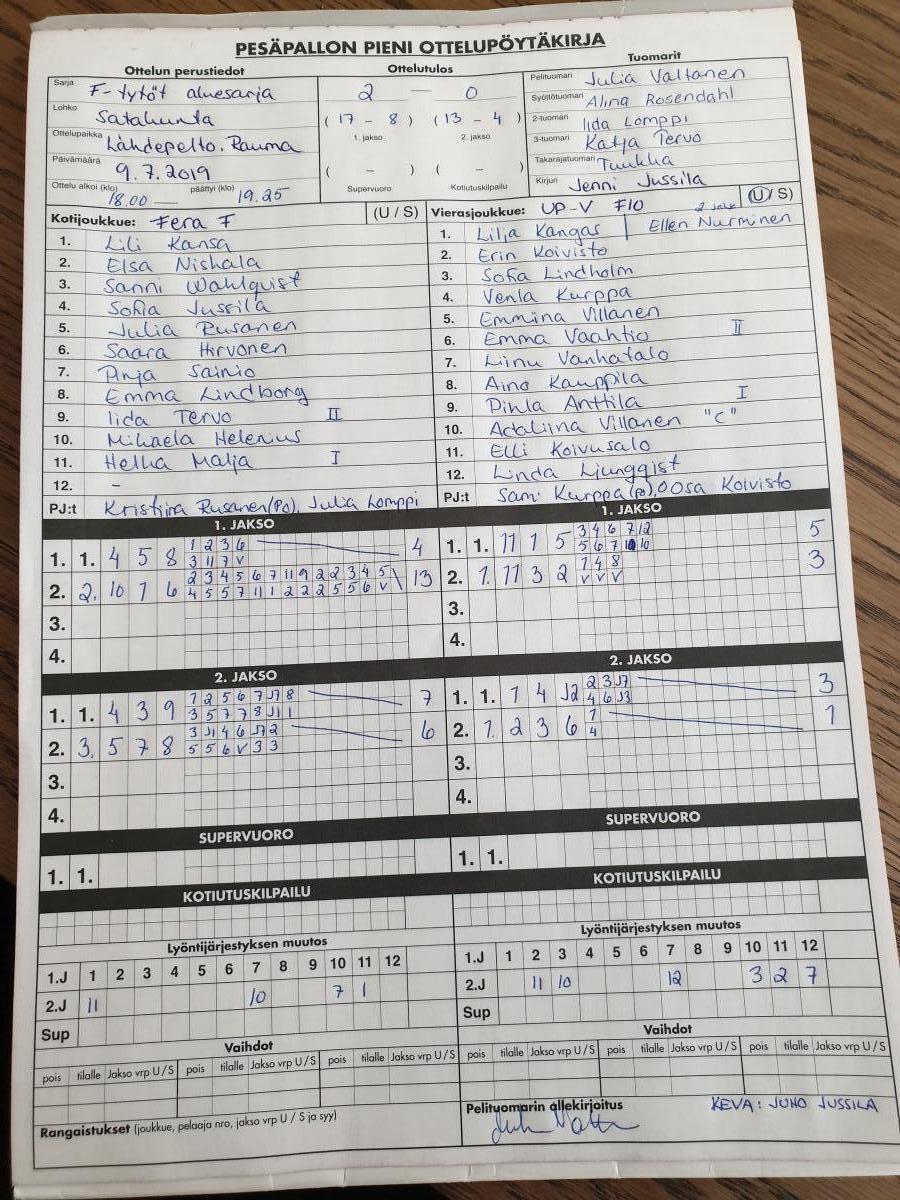 PESÄPALLON PIENI OTTELUPÖYTÄKIRJA
Ottelun perustiedot
Sarja F-tytöt aluesarja
Lohko Satakunta
Ottelupaikka Lähdepelto. Rauma
Päivämäärä 9.7.2019
Ottelu alkoi (klo) 18.00 — päättyi (klo) 19.25
Ottelutulos
2 — 0
( 17 - 8 ) ( 13 - 4 )
1. jakso 2. jakso
( - ) ( - )
Supervuoro Kotiutuskilpailu
Tuomarit
Pelituomari Julia Valtanen
Syöttötuomari Alina Rosendahl
2-tuomari Iida Lomppi
3-tuomari Katja Tervo
Takarajatuomari Tuukka
Kirjuri Jenni Jussila
Kotijoukkue: Fera F (U / S)
1. Lili Kansa
2. Elsa Niskala
3. Sanni Wahlquist
4. Sofia Jussila
5. Julia Rusanen
6. Saara Hirvonen
7. Pinja Sainio
8. Emma Lindborg
9. Iida Tervo II
10. Mikaela Helenius
11. Helka Malja I
12. -
PJ:t Kristiina Rusanen (Po), Julia Lomppi
Vierasjoukkue: UP-V F10 2 jakso (U / S)
1. Lilja Kangas | Ellen Nurminen
2. Erin Koivisto
3. Sofia Lindholm
4. Venla Kurppa
5. Emmina Villanen
6. Emma Vaahtio II
7. Liinu Vanhatalo
8. Aino Kauppila
9. Pihla Anttila I
10. Adaliina Villanen "C"
11. Elli Koivusalo
12. Linda Ljungqist
PJ:t Sami Kurppa (p), OOsa Koivisto
1. JAKSO
1. 1. 4 5 8 1 2 3 6 4
3 11 7 V
2. 2. 10 1 6 2 3 4 5 6 7 11 9 2 2 3 4 5 \ 13
4 5 5 7 11 1 2 2 2 5 5 6 V
3.
4.
1. JAKSO
1. 1. 11 1 5 3 4 6 7 12 5
5 6 7 10 10
2. 1. 11 3 2 7 4 8 3
V V V
3.
4.
2. JAKSO
1. 1. 4 3 9 1 2 5 6 7 J1 8 7
3 5 7 7 8 J1 1
2. 3. 5 7 8 3 J1 4 6 J2 2 6
5 5 6 V 3 3
3.
4.
2. JAKSO
1. 1. 7 4 J2 2 3 J7 3
4 6 J3
2. 1. 2 3 6 7 1
4
3.
4.
SUPERVUORO
1. 1.
SUPERVUORO
1. 1.
KOTIUTUSKILPAILU
KOTIUTUSKILPAILU
Lyöntijärjestyksen muutos
1.J 1 2 3 4 5 6 7 8 9 10 11 12
2.J 11 10 7 1
Sup
Lyöntijärjestyksen muutos
1.J 1 2 3 4 5 6 7 8 9 10 11 12
2.J 11 10 12 3 2 7
Sup
Vaihdot
pois tilalle Jakso vrp U / S pois tilalle Jakso vrp U / S pois tilalle Jakso vrp U / S
Vaihdot
pois tilalle Jakso vrp U / S pois tilalle Jakso vrp U / S pois tilalle Jakso vrp U / S
Rangaistukset (joukkue, pelaaja nro, jakso vrp U / S ja syy)
Pelituomarin allekirjoitus
KEVA: JUHO JUSSILA